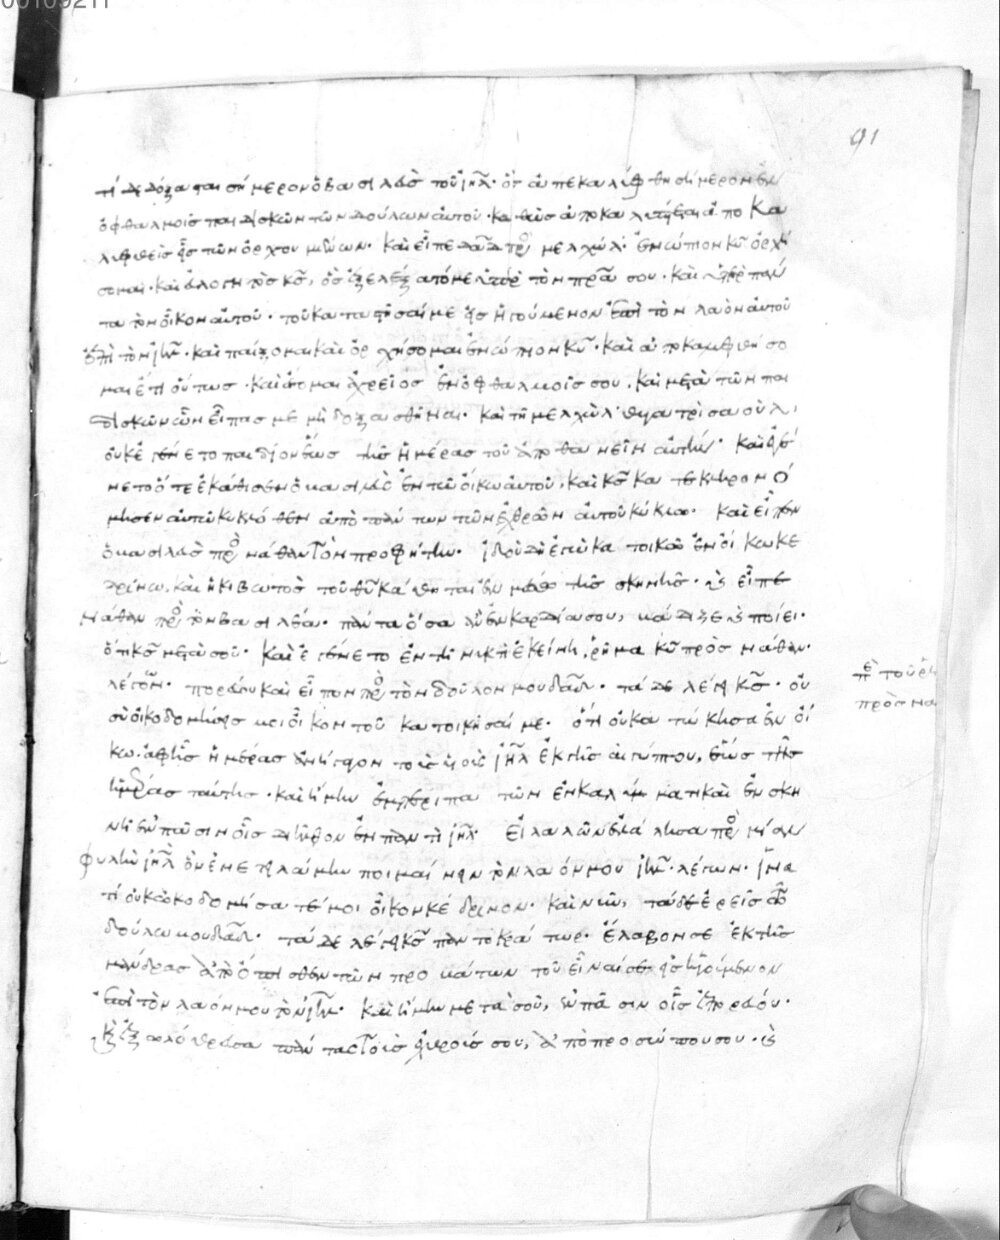 00109211
91
τί δεδόξασται σήμερον ὁ βασιλεὺς τοῦ ἰηλ. ὃς ἀπεκαλύφθη σήμερον ἐν
ὀφθαλμοῖς παιδισκῶν τῶν δούλων αὐτοῦ. καθὼς ἀποκαλύπτεται ἀποκα
λυφθεὶς εἷς τῶν ὀρχουμένων. καὶ εἶπε δαδ πρὸς μελχώλ. ἐνώπιον κυ ὀρχή
σομαι. καὶ εὐλογητὸς κς, ὃς ἐξελέξατό με ὑπὲρ τὸν πρα σου. καὶ ὑπὲρ πάν
τα τὸν οἶκον αὐτοῦ. τοῦ καταστῆσαί με εἰς ἡγούμενον ἐπὶ τὸν λαὸν αὐτοῦ
ἐπὶ τὸν ἰηλ. καὶ παίξομαι καὶ ὀρχήσομαι ἐνώπιον κυ. καὶ ἀποκαλυφθήσο
μαι ἔτι οὕτως. καὶ ἔσομαι ἀχρεῖος ἐν ὀφθαλμοῖς σου. καὶ μετὰ τῶν παι
δισκῶν ὧν εἶπας με μὴ δοξασθῆναι. καὶ τῇ μελχὼλ θυγατρὶ σαοὺλ,
οὐκ ἐγένετο παιδίον ἕως τῆς ἡμέρας τοῦ ἀποθανεῖν αὐτήν. καὶ ἐγέ
νετο ὅτε ἐκάθισεν ὁ βασιλεὺς ἐν τῷ οἴκῳ αὐτοῦ, καὶ κς κατεκληρονό
μησεν αὐτῷ κυκλόθεν ἀπὸ πάντων τῶν ἐχθρῶν αὐτοῦ κύκλω. καὶ εἶπεν
ὁ βασιλεὺς πρὸς νάθαν τὸν προφήτην. ἰδοὺ δὴ ἐγὼ κατοικῶ ἐν οἴκω κε
δρίνω, καὶ ἡ κιβωτὸς τοῦ θυ κάθηται ἐν μέσω τῆς σκηνῆς. καὶ εἶπε
νάθαν πρὸς τὸν βασιλέα. πάντα ὅσα ἂν ἐν καρδία σου, βάδιζε καὶ ποίει.
ὅτι κς μετὰ σοῦ. καὶ ἐγένετο ἐν τῇ νυκτὶ ἐκείνῃ, ῥῆμα κυ πρὸς νάθαν.
λέγων. πορεύου καὶ εἶπον πρὸς τὸν δοῦλον μου δαδ. τάδε λέγει κς. οὐ
σὺ οἰκοδομήσεις μοι οἶκον τοῦ κατοικῆσαί με. ὅτι οὐ κατώκησα ἐν οἴ
κω. ἀφ' ἧς ἡμέρας ἀνήγαγον τοὺς υἱοὺς ἰηλ ἐκ γῆς αἰγύπτου, ἕως τῆς
ἡμέρας ταύτης. καὶ ἤμην ἐμπεριπατῶν ἐν καλύμματι καὶ ἐν σκη
νῇ ἐν πᾶσιν οἷς διῆλθον ἐν παντὶ ἰηλ. εἰ λαλῶν ἐλάλησα πρὸς μίαν
φυλὴν ἰηλ ὃν ἐνετειλάμην ποιμαίνειν τὸν λαόν μου ἰηλ. λέγων. ἵνα
τί οὐκ ᾠκοδομήσατέ μοι οἶκον κέδρινον. καὶ νῦν, τάδε ἐρεῖς τῶ
δούλω μου δαδ. τάδε λέγει κς παντοκράτωρ. ἔλαβόν σε ἐκ τῆς
μάνδρας ἀπὸ ὄπισθεν τῶν προβάτων τοῦ εἶναί σε εἰς ἡγούμενον
ἐπὶ τὸν λαόν μου τὸν ἰηλ. καὶ ἤμην μετὰ σοῦ, ἐν πᾶσιν οἷς ἐπορεύου.
καὶ ἐξωλόθρευσα πάντας τοὺς ἐχθρούς σου, ἀπὸ προσώπου σου. καὶ